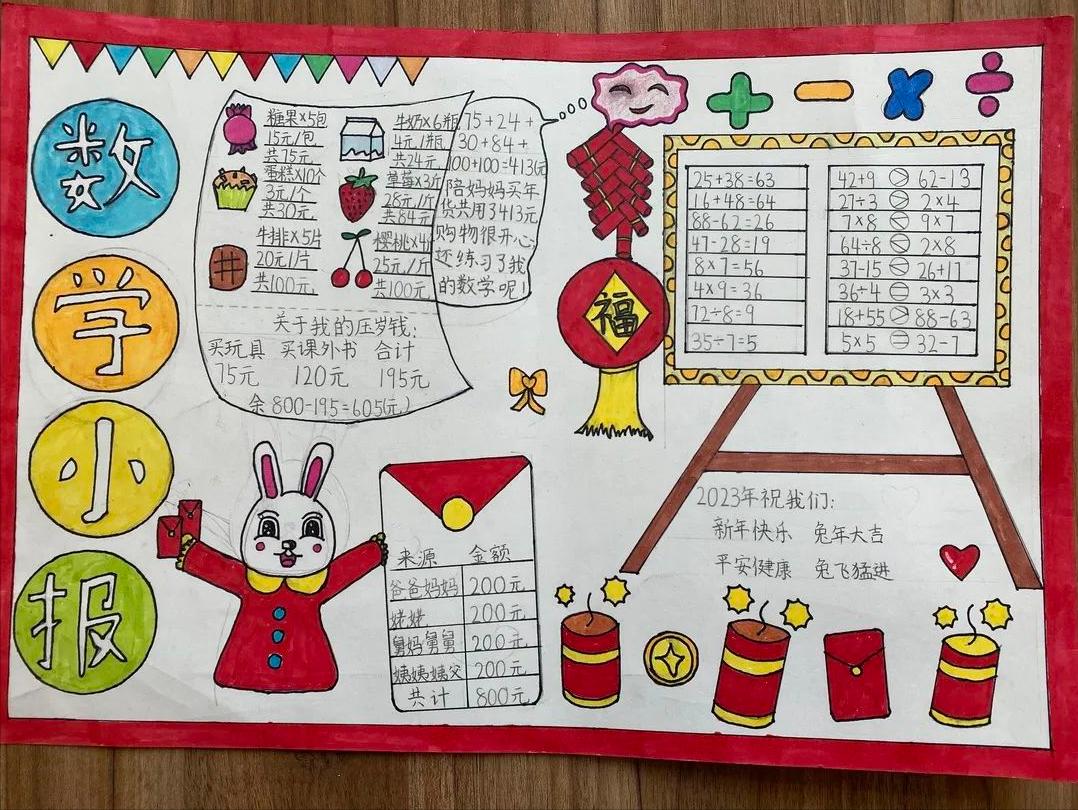 数
学
小
报
糖果×5包
15元/包
共75元
蛋糕×10个
3元/个
共30元
牛排×5片
20元/片
共100元
牛奶×6瓶
4元/瓶
共24元
草莓×3斤
28元/斤
共84元
樱桃×4斤
25元/斤
共100元
75+24+
30+84+
100+100=413(元)
陪妈妈买年
货共用了413元
购物很开心,
还练习了我
的数学呢!
关于我的压岁钱:
买玩具 买课外书 合计
75元 120元 195元
余800-195=605(元)
福
25+38=63
16+48=64
88-62=26
47-28=19
8×7=56
4×9=36
72÷8=9
35÷7=5
42+9 > 62-13
27÷3 > 2×4
7×8 < 9×7
64÷8 < 2×8
37-15 < 26+17
36÷4 = 3×3
18+55 > 88-63
5×5 = 32-7
来源 金额
爸爸妈妈 200元
姥姥 200元
舅妈舅舅 200元
姨姨姨父 200元
共计 800元
2023年祝我们:
新年快乐 兔年大吉
平安健康 兔飞猛进